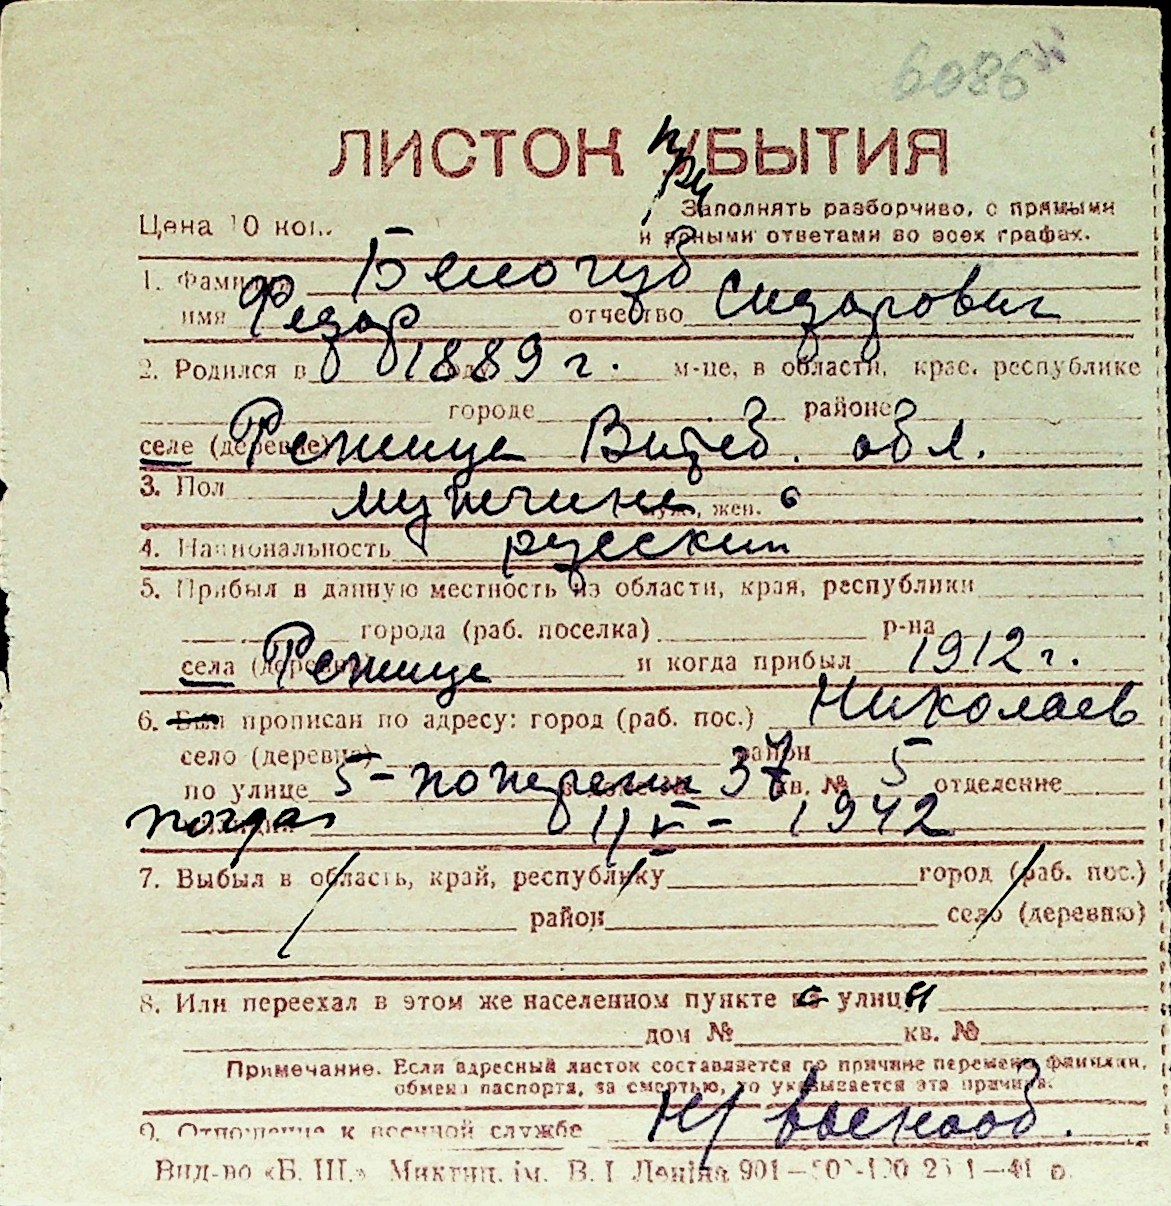 6086
ЛИСТОК УБЫТИЯ
при
Цена 10 коп.
Заполнять разборчиво, с прямыми
и ясными ответами во всех графах.
1. Фамилия Белогуб
имя Федар отчество Сидарович
2. Родился в 1889 г. году м-це, в области, крае, республике
городе районе
селе (деревне) Режице Витеб. обл.
3. Пол мущчина муж., жен.
4. Национальность русский
5. Прибыл в данную местность из области, края, республики
города (раб. поселка) р-на
села (деревни) Режице и когда прибыл 1912 г.
6. Был прописан по адресу: город (раб. пос.) Николаев
село (деревня) район
по улице 5- поперечн 37 кв. № 5 отделение
11/V - 1942
7. Выбыл в область, край, республику город (раб. пос.)
район село (деревню)
8. Или переехал в этом же населенном пункте с улицы
дом № кв. №
Примечание. Если адресный листок составляется по причине перемены фамилии,
обмена паспорта, за смертью, то указывается эта причина.
9. Отношение к военной службе н/ военооб.
Вид-во «Б. Ш.» Микт ім. В. І Леніна 901